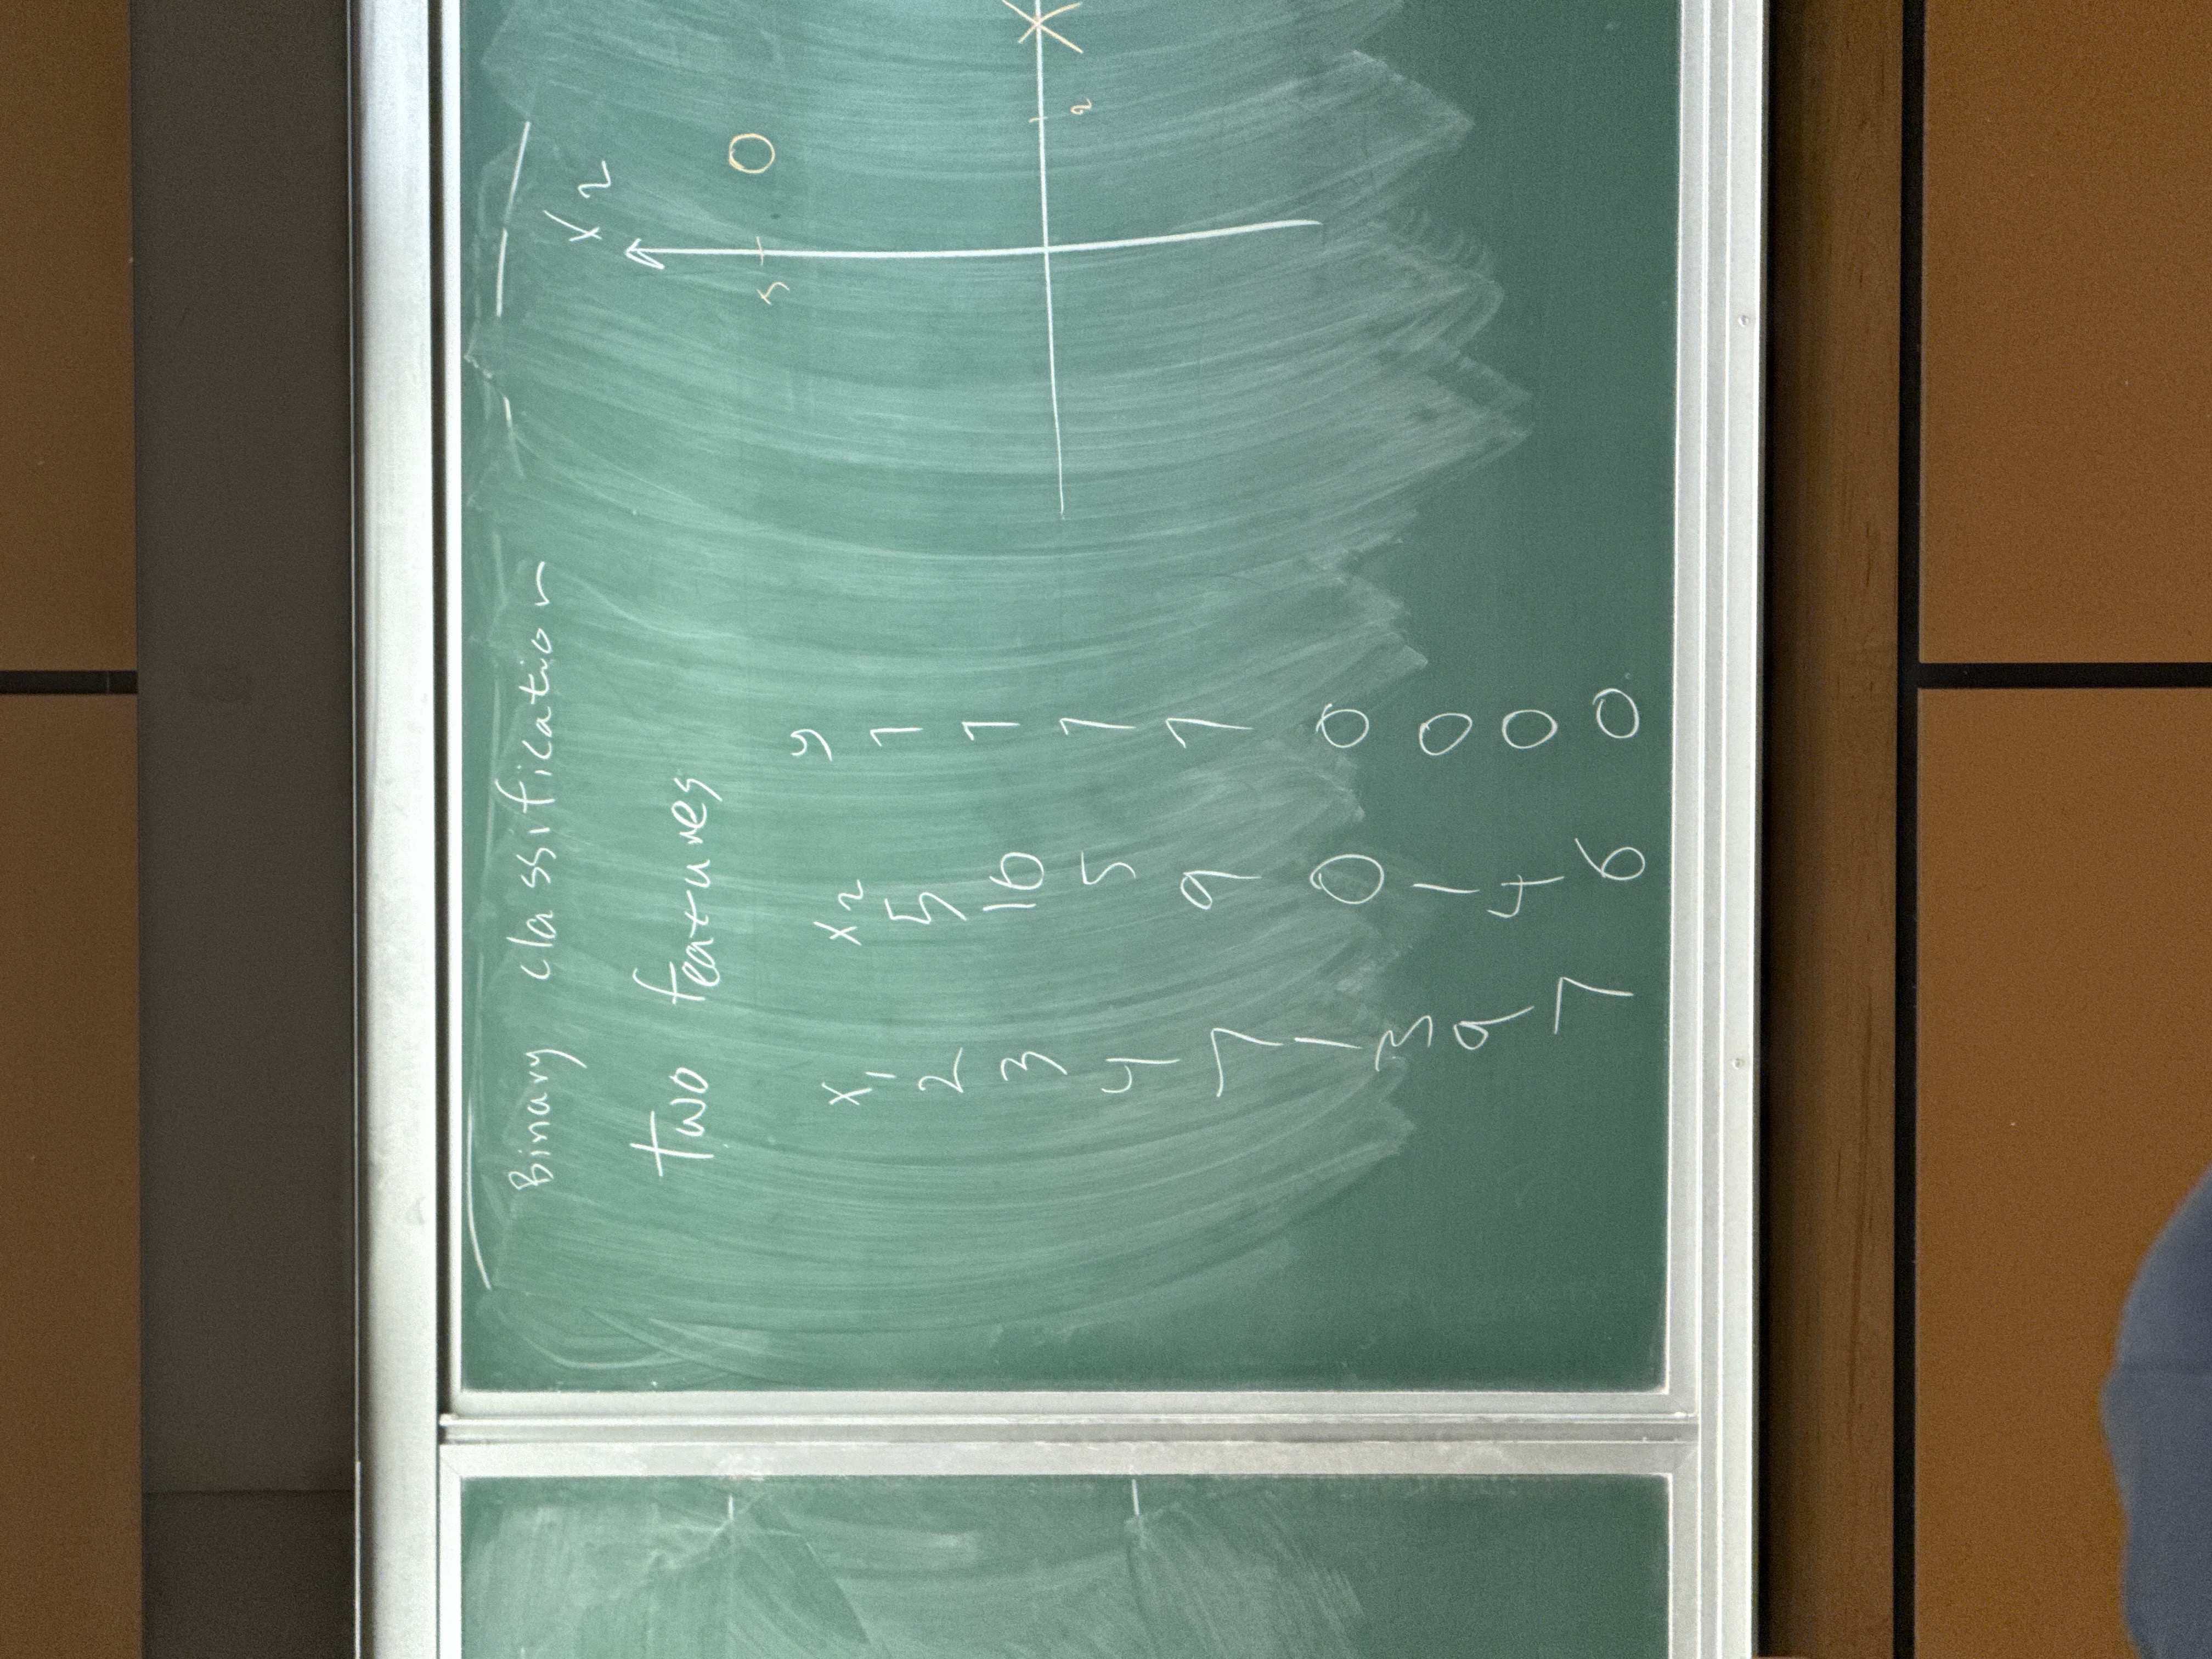 Binary classification
Two features
x1 x2 y
2 5 1
3 10 1
4 5 1
7 9 1
1 0 0
3 1 0
9 4 0
7 6 0
x2
5
2